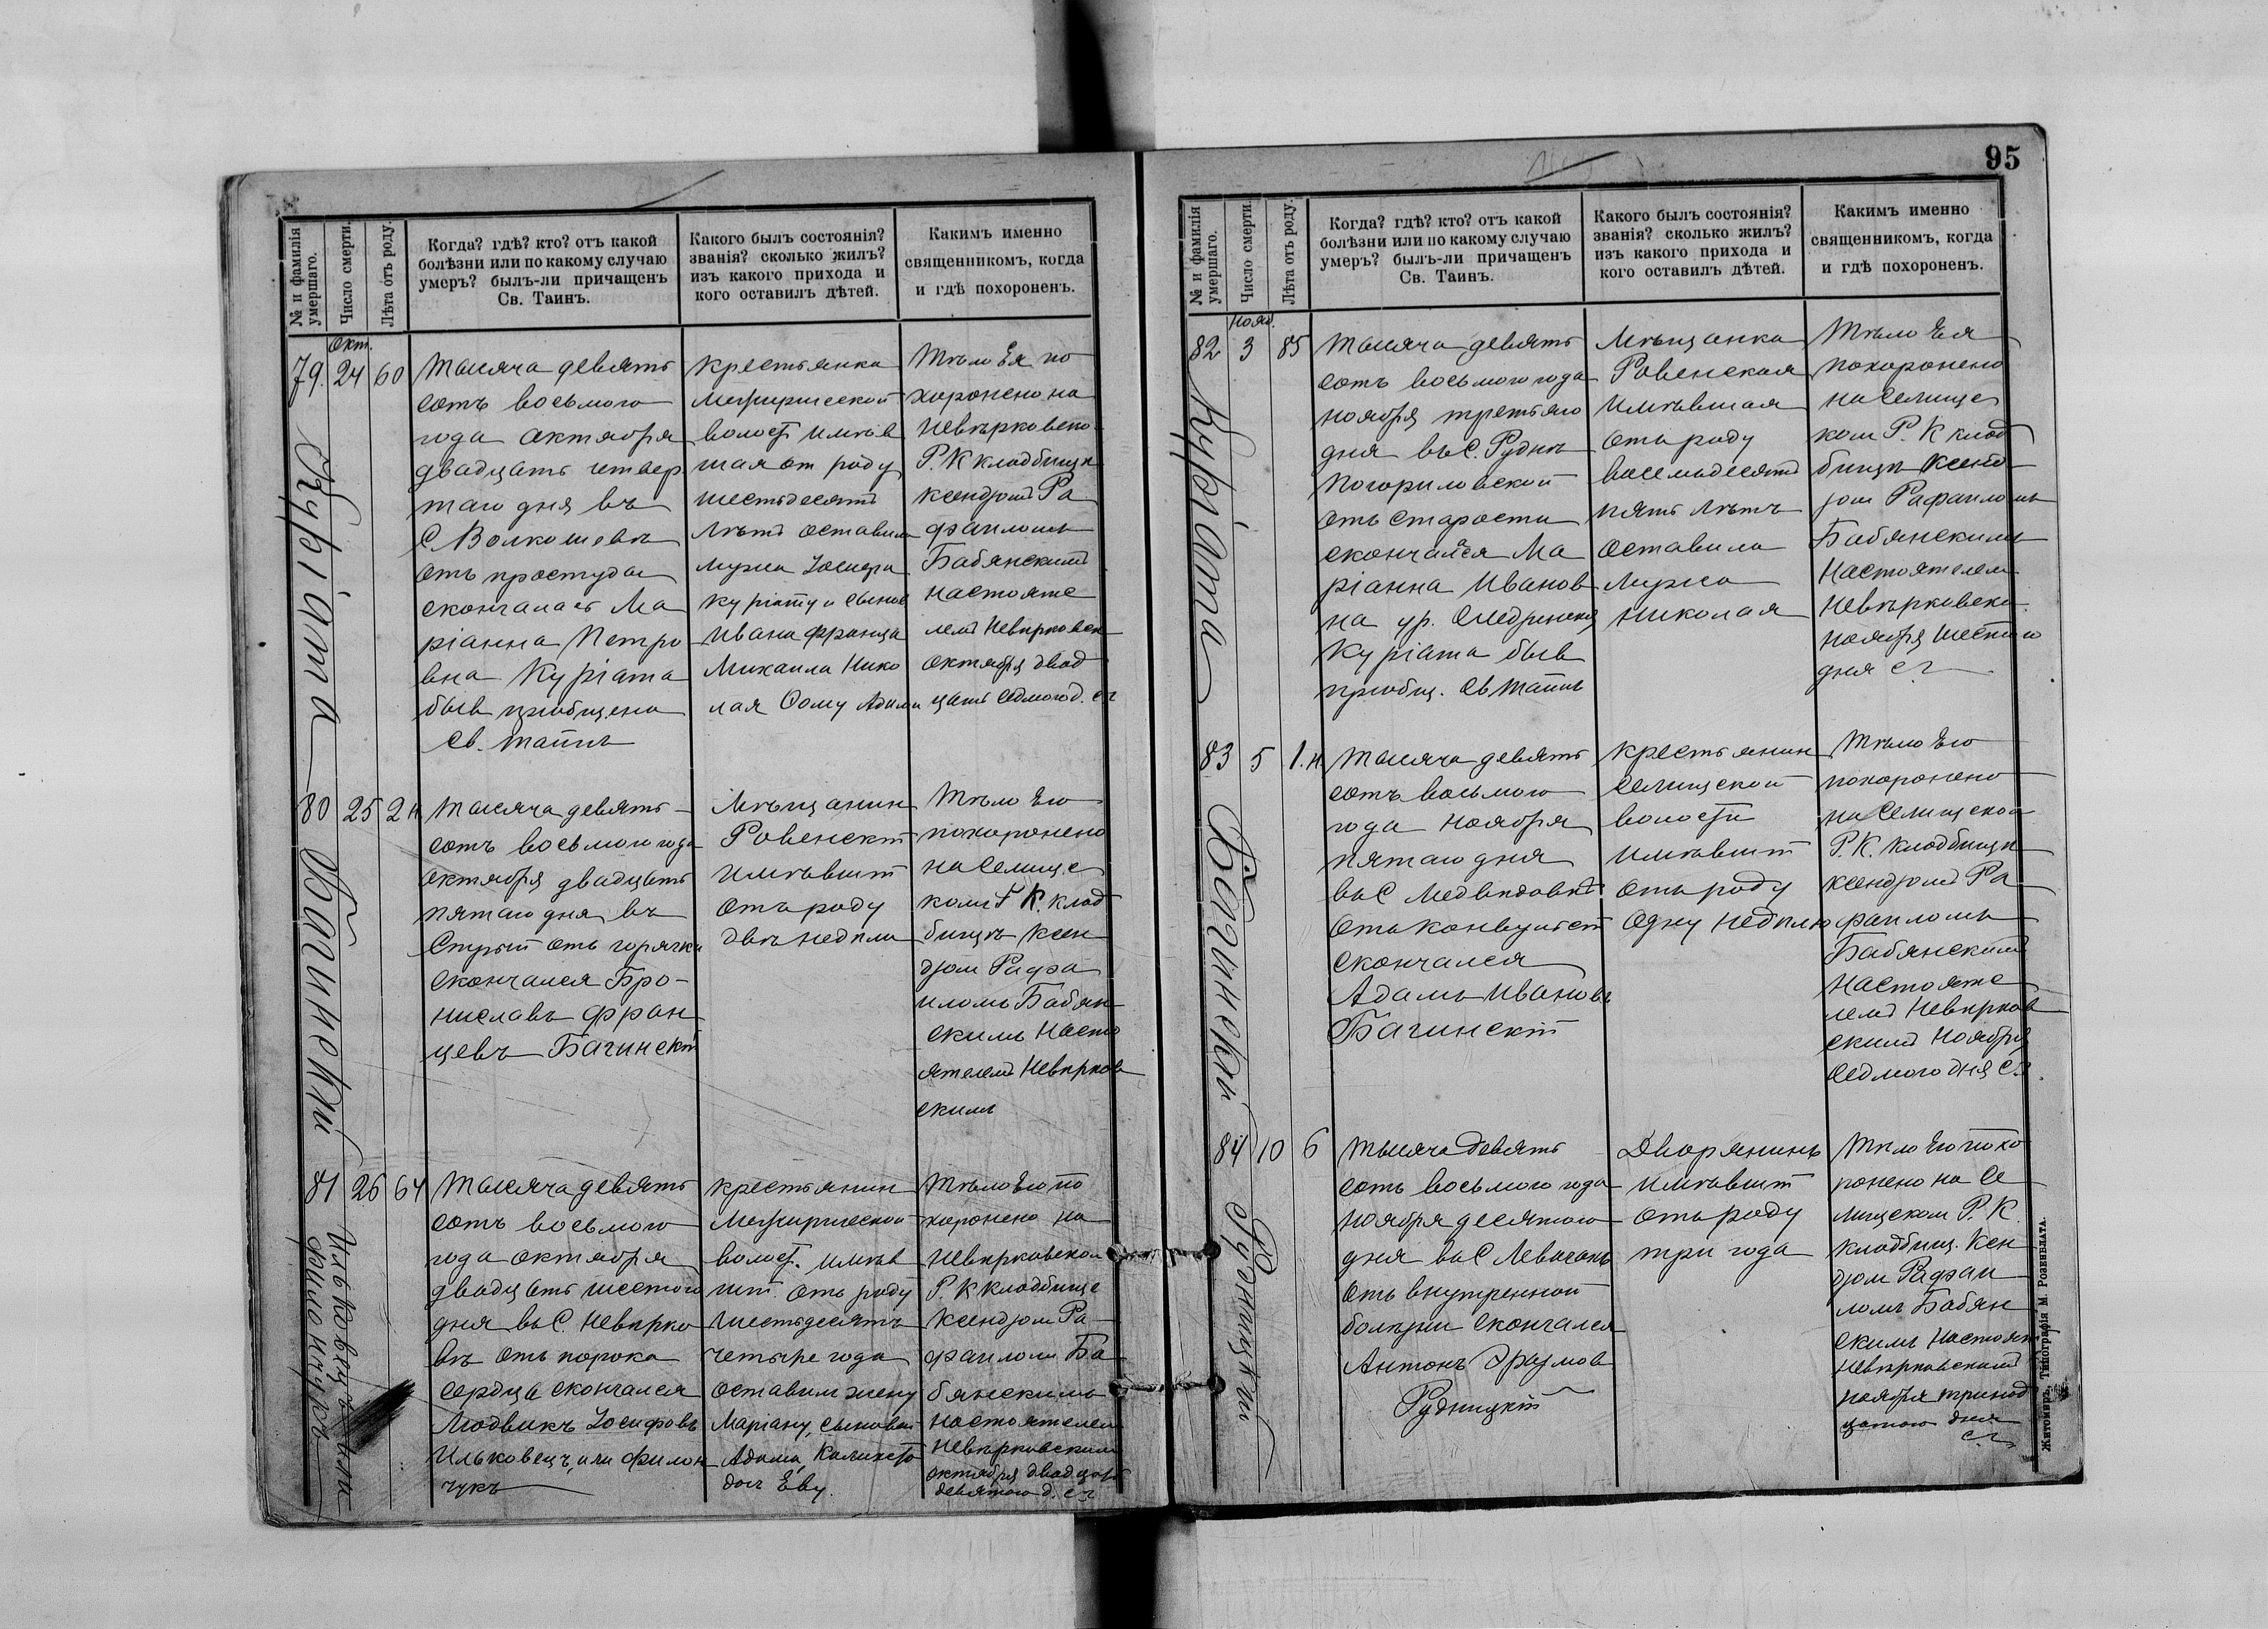 95
№ и фамилія умершаго.
Число смерти.
Лѣта отъ роду.
Когда? гдѣ? кто? отъ какой
болѣзни или по какому случаю
умеръ? былъ-ли причащенъ
Св. Таинъ.
Какого былъ состоянія?
званія? сколько жилъ?
изъ какого прихода и
кого оставилъ дѣтей.
Какимъ именно
священникомъ, когда
и гдѣ похороненъ.
Окт.
79. 24 60
Куріата
Тысяча девять
сотъ восьмого
года октября
двадцать четвер
таго дня въ
С Волкошевѣ
отъ простуды
скончалась Ма
ріанна Петро
вна Куріата
быв приобщена
Св. Таинъ
Крестьянка
Межиричской
волост имѣв
шая от роду
шестьдесятъ
лѣтъ оставила
мужа Іосифа
Куріату и сынов
Ивана Франца
Михаила Нико
лая Фому Адама
Тѣло Ея по
хоронено на
Невѣрковско
Р. К кладбищѣ
ксендзомъ Ра
фаиломъ
Бабянскимъ
настояте
лемъ Невѣрковск
октября двад
цать седмого д. сг
80 25 2 н
Багинскій
Тысяча девять
сотъ восьмого года
октября двадцать
пятаго дня въ
отъ горячки
скончался Бро-
ниславъ Фран
цевъ Багинскій
Мѣщанин
Ровенскій
имѣвшій
отъ роду
двѣ недѣли
Тѣло Его
похоронено
на Селище
ком Р К. клад
бищѣ ксен
дзом Рафа
иломъ Бабян
скимъ Насто
ятелемъ Невѣрков
скимъ
81 26 64
Ильковецъ или
Филончукъ
Тысяча девять
сотъ восьмого
года октября
двадцать шестого
дня въ С. Невѣрко
въ отъ порока
сердца скончался
Людвикъ Іосифовъ
Ильковецъ, или Филон
чукъ
Крестьянин
Межиричской
волост. имѣв
шій отъ роду
шестьдесятъ
четыре года
оставилъ жену
Маріану, сыновей
Адама, Каликста
доч Еву.
Тѣло Его по
хоронено на
Невѣрковском
Р. К кладбище
ксендзом Ра
фаилом Ба
бянскимъ
настоятелем
Невѣрковским
октября двадцать
девятого д. сг
№ и фамилія умершаго.
Число смерти.
Лѣта отъ роду.
Когда? гдѣ? кто? отъ какой
болѣзни или по какому случаю
умеръ? былъ-ли причащенъ
Св. Таинъ.
Какого былъ состоянія?
званія? сколько жилъ?
изъ какого прихода и
кого оставилъ дѣтей.
Какимъ именно
священникомъ, когда
и гдѣ похороненъ.
Нояб.
82 3 85
Куріата
Тысяча девять
сотъ восьмого года
ноября третьяго
дня въ С. Руднѣ
Погориловской
отъ старости
скончалася Ма
ріанна Иванов
на ур.
Куріата быв
приобщ. Св Таинъ
Мѣщанка
Ровенская
имѣвшая
отъ роду
восемьдесятъ
пять лѣтъ
оставила
мужа
Николая
Тѣло Ея
похоронено
на Селище
ком Р. К клад
бищѣ ксенд
зом Рафаиломъ
Бабянскимъ
Настоятелем
Невѣрковски
ноября шестого
дня с.г
83 5 1.н
Багинскій
Тысяча девять
сотъ восьмого
года ноября
пятаго дня
въ С Медвѣдовкѣ
отъ конвульсій
скончался
Адамъ Ивановъ
Багинскій
Крестьянин
Селищской
волости
имѣвшій
отъ роду
одну недѣлю
Тѣло Его
похоронено
на Селищском
Р. К. кладбищѣ
ксендзомъ Ра
фаиломъ
Бабянскимъ
настояте
лемъ Невѣрков
скимъ ноября
седмого дня с.г.
84 10 6
Рудницкій
Тысяча девять
сотъ восьмого года
ноября десятого
дня въ С Левачахъ
отъ внутренной
болѣзни скончался
Антонъ Эразмов
Рудницкій
Дворянинъ
имѣвшій
отъ роду
три года
Тѣло Его похо
ронено на Се
лищском Р. К.
кладбищ. ксен
дзом Рафаи
ломъ Бабян
скимъ Настоят
Невѣрковскимъ
ноября тринад
цатого дня
с.г.
Житомиръ, Типографія М. Розенблата.